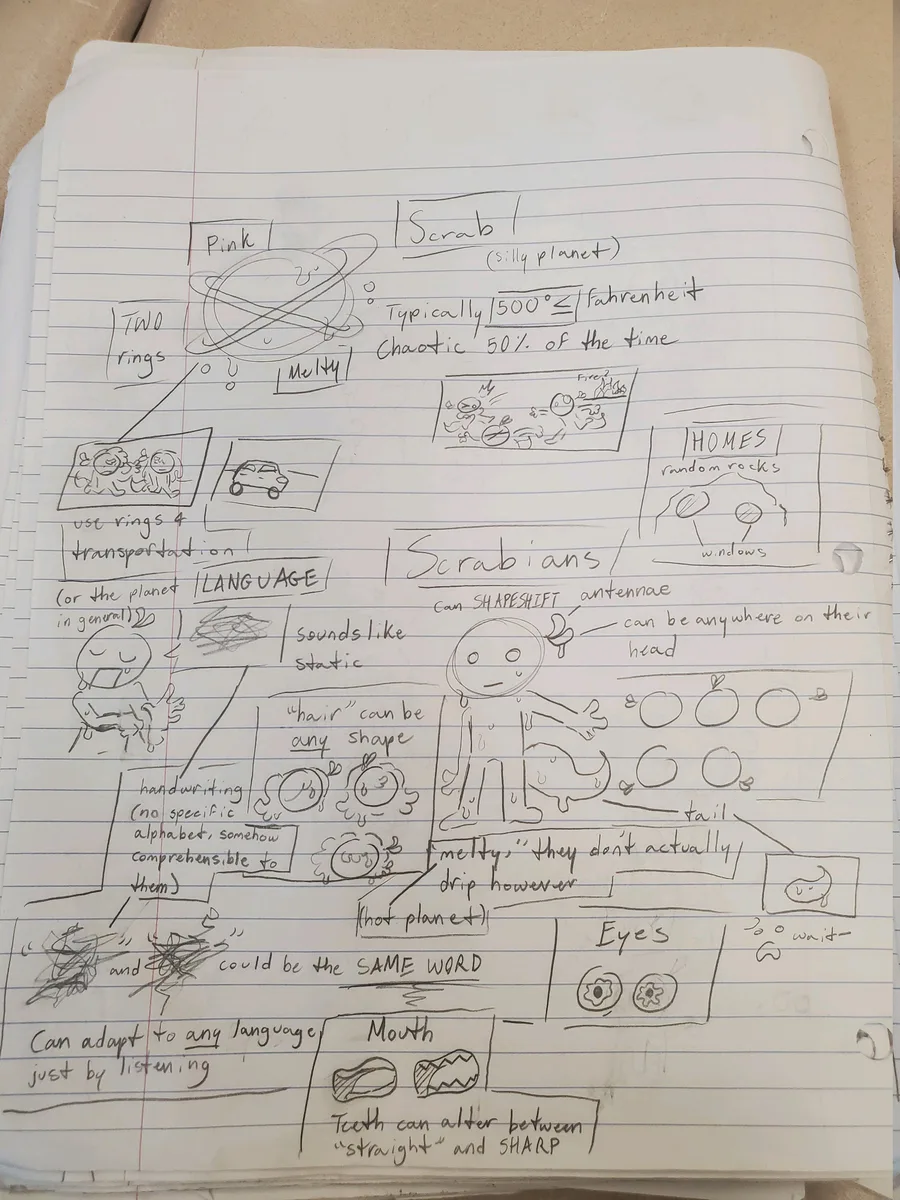 Pink
Scrab
(silly planet)
TWO
rings
Melty
Typically 500°≤ Fahrenheit
Chaotic 50% of the time
Fire?
HOMES
random rocks
windows
use rings 4
transportation
(or the planet
in general)
LANGUAGE
sounds like
static
Scrabians
can SHAPESHIFT
antennae
can be anywhere on their
head
"hair" can be
any shape
handwriting
(no specific
alphabet, somehow
comprehensible to
them)
tail
"melty," they don't actually
drip however
(hot planet)
" " and " " could be the SAME WORD
Can adapt to any language
just by listening
Eyes
wait—
Mouth
Teeth can alter between
"straight" and SHARP